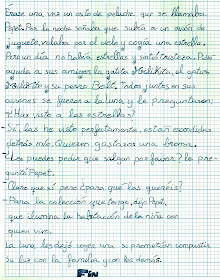 Érase una vez un osito de peluche que se llamaba
Pepet. Por la noche soñaba que subía a un avión de
juguete, volaba por el cielo y cogía una estrella.
Pero un día no había estrellas y sintió tristeza. Pidió
ayuda a sus amigos la gatita Holikita, el gatito
Holikito y su perro Bolt. Todos juntos en sus
aviones se fueron a la luna y le preguntaron:
-¿Has visto a las estrellas?
- Sí las he visto perfectamente, están escondidas
detrás mío. Quieren gastaros una broma.
- ¿Les puedes pedir que salgan por favor? le pre-
guntó Pepet.
- Claro que sí pero ¿para qué las queréis?
- Para la colección que tengo, dijo Pepet,
que ilumina la habitación de la niña con
quien vivo.
La luna les dejó coger una, si prometían compartir
su luz con la familia y con los demás.
FIN